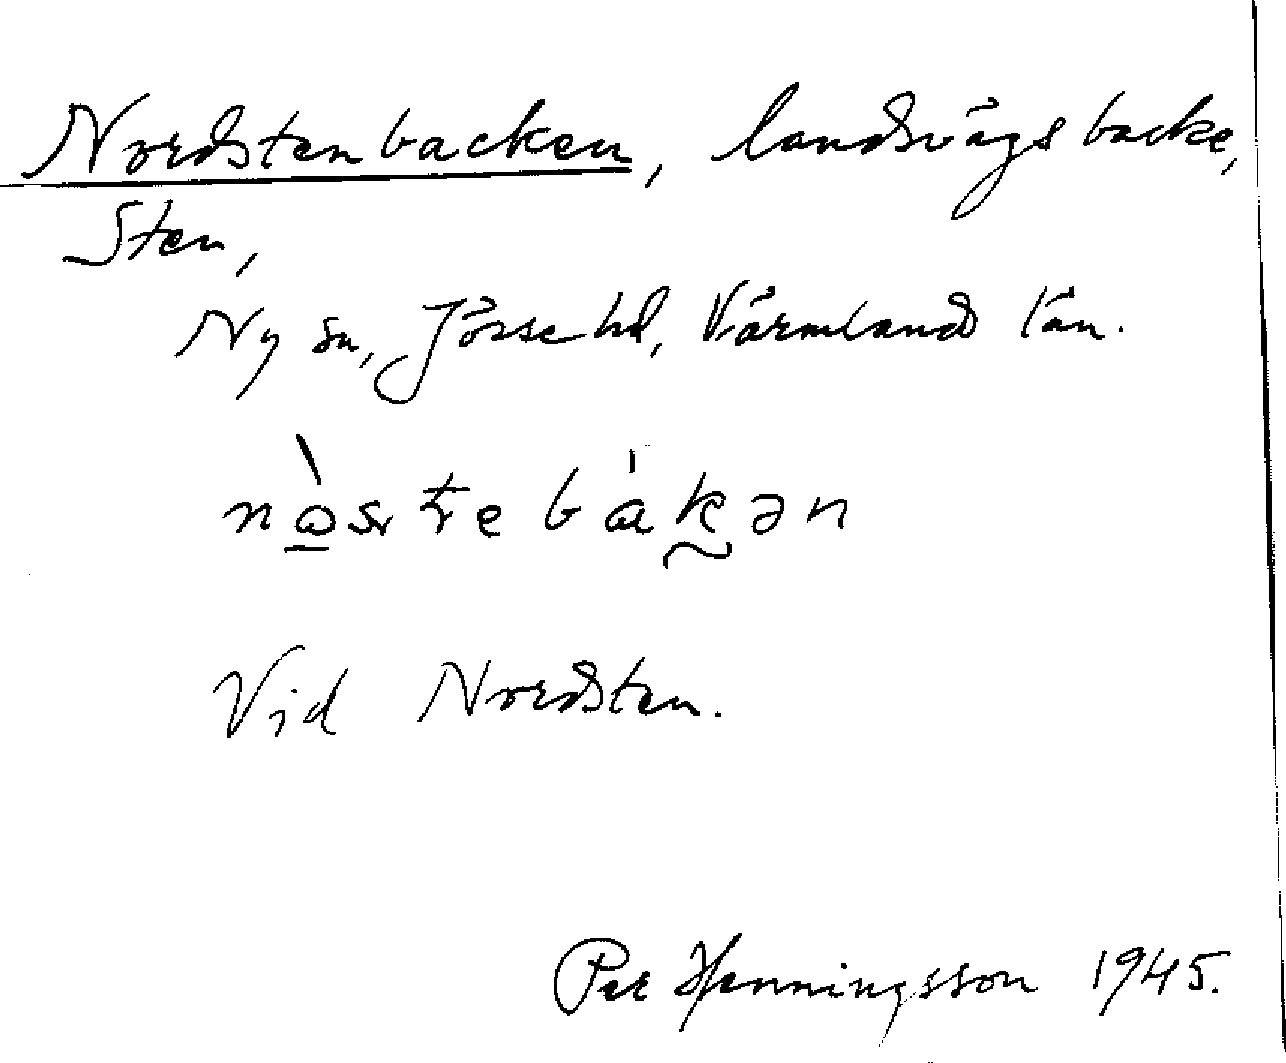 Nordstenbacken, landsvägsbacke,
Sten,
Ny sn, Jösse hd, Värmlands län.
Vid Nordsten.
Per Henningsson 1945.